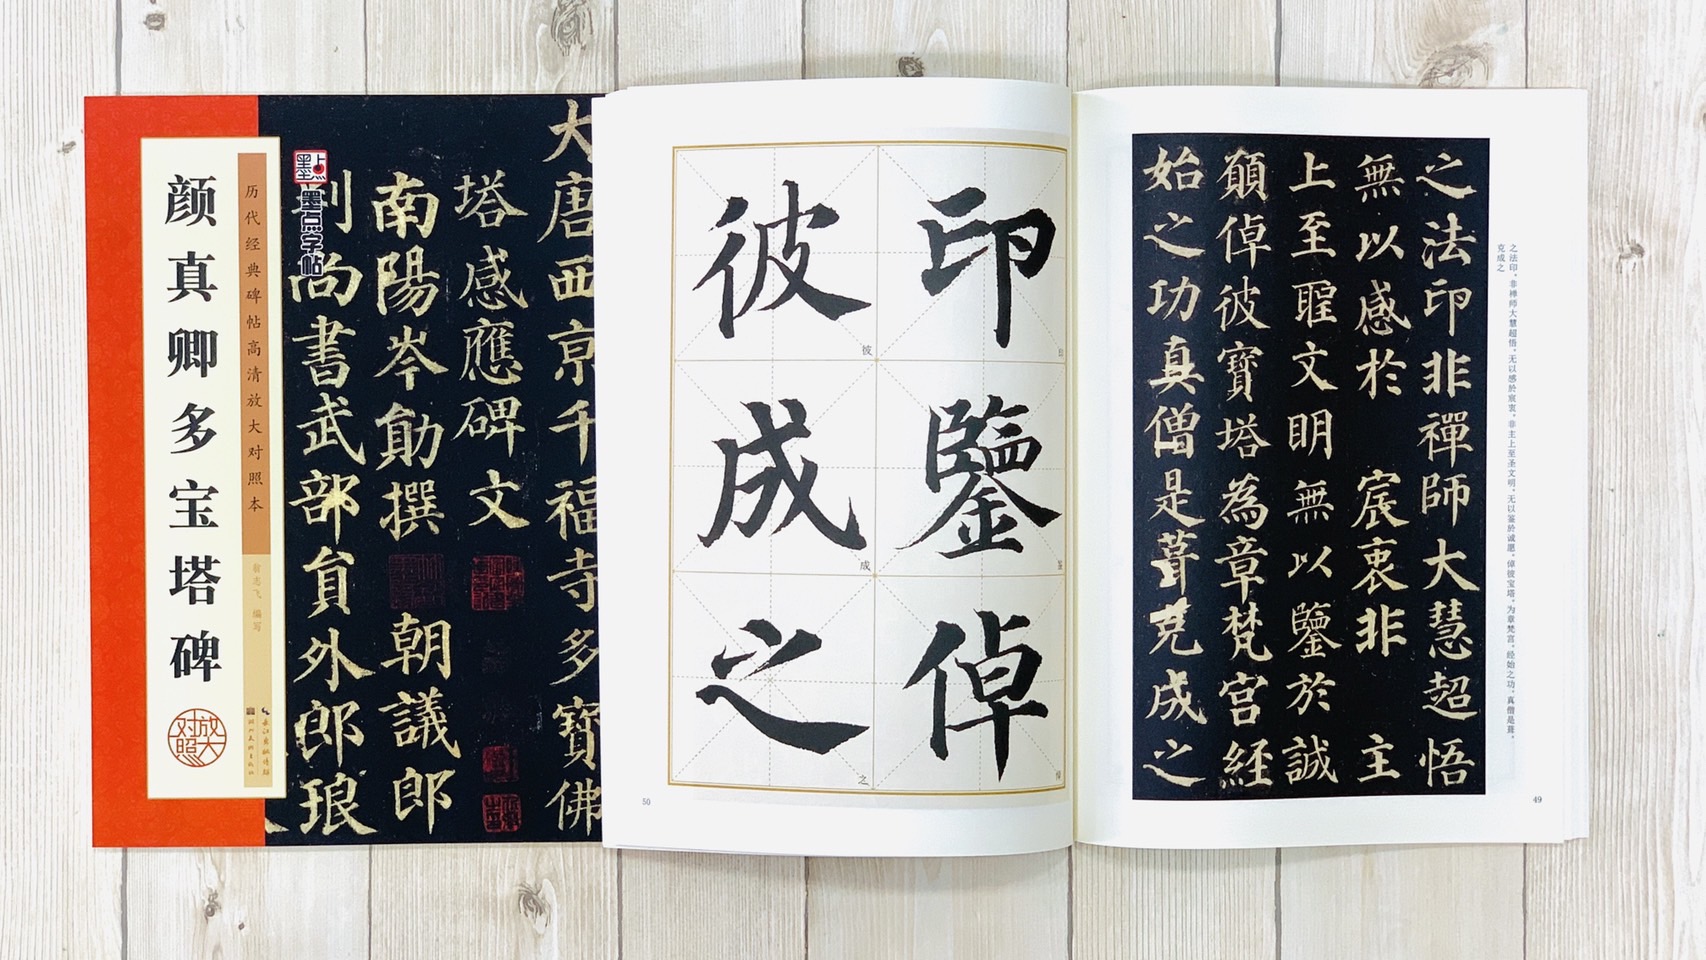 颜真卿多宝塔碑
放大对照
历代经典碑帖高清放大对照本
翁志飞 编写
长江出版传媒
湖北美术出版社
墨点
墨点字帖
大唐西京千福寺多寶佛
塔感應碑文
南陽岑勛撰 朝議郎
判尚書武部員外郎琅
印鑒倬
彼成之
彼
成
之
50
之法印非禪師大慧超悟
無以感於 宸衷非 主
上至聖文明無以鑒於誠
願倬彼寶塔為章梵宫経
始之功真僧是葺克成之
之法印，非禅师大慧超悟，无以感於宸衷，非主上至圣文明，无以鉴於诚愿。倬彼宝塔，为章梵宫，经始之功，真僧是葺，
克成之
49